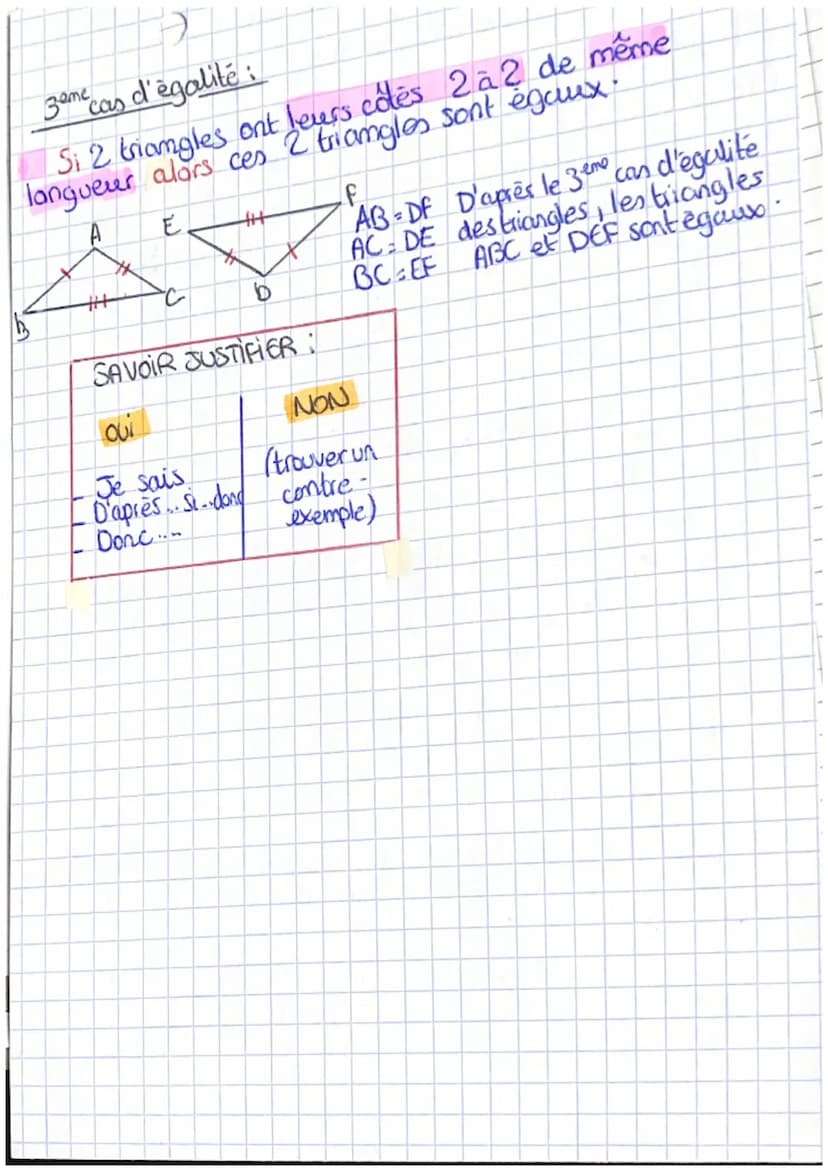 3eme cas d'égalité :
Si 2 triangles ont leurs côtés 2 à 2 de même
longueur alors ces 2 triangles sont égaux.
A
E
F
B
C
D
AB = DF D'après le 3eme cas d'égalité
AC = DE des triangles, les triangles
BC = EF ABC et DEF sont égaux.
SAVOIR JUSTIFIER :
OUI
NON
- Je sais
- D'après... Si... donc
- Donc....
(trouver un
contre-
exemple)